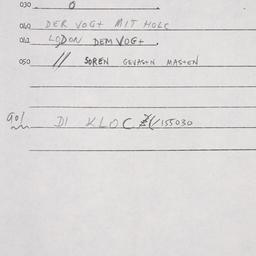 030 0
060 DER VOGT MIT HOLC
061 LODON DEM VOGT.
050 // SOREN GEVASEN MASTEN
901 DI KLOC 155030